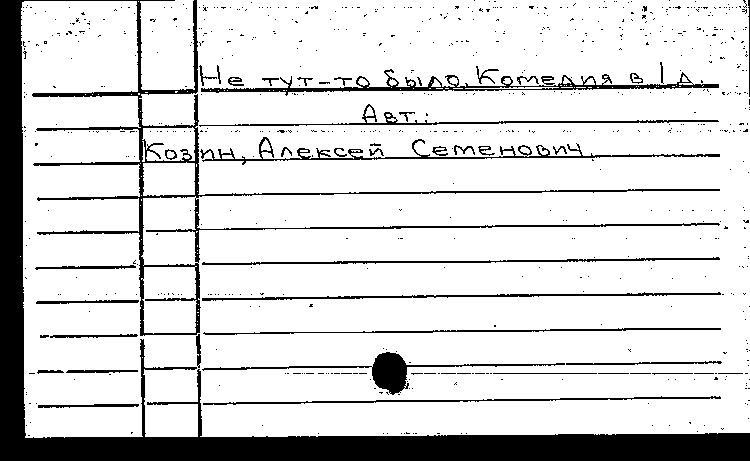 Не тут-то было. Комедия в 1 д.
Авт.:
Козин, Алексей Семенович.